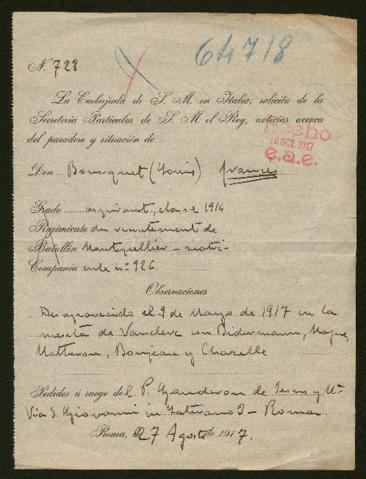 64718
Nº 728
La Embajada de S. M. en Italia, solicita de la
Secretería Particular de S. M. el Rey, noticias acerca
del paradero y situación de
10 OCT. 1917
e.a.e.
Don Bousquet (Louis) frances
Grado aspirant, classe 1914
Regimiento du recrutement de
Batallón Montpellier - matri-
Compañía cule nº 926.
Observaciones
Desaparecido el 9 de Mayo de 1917 en la
meseta de Vauclerc con Bidermann,
Matteron, Bonjean y Chazelle
Pedidos á ruego del P. de y Mª
Via S. Giovanni in Laterano - Roma.
Roma, 27 Agosto 1917.